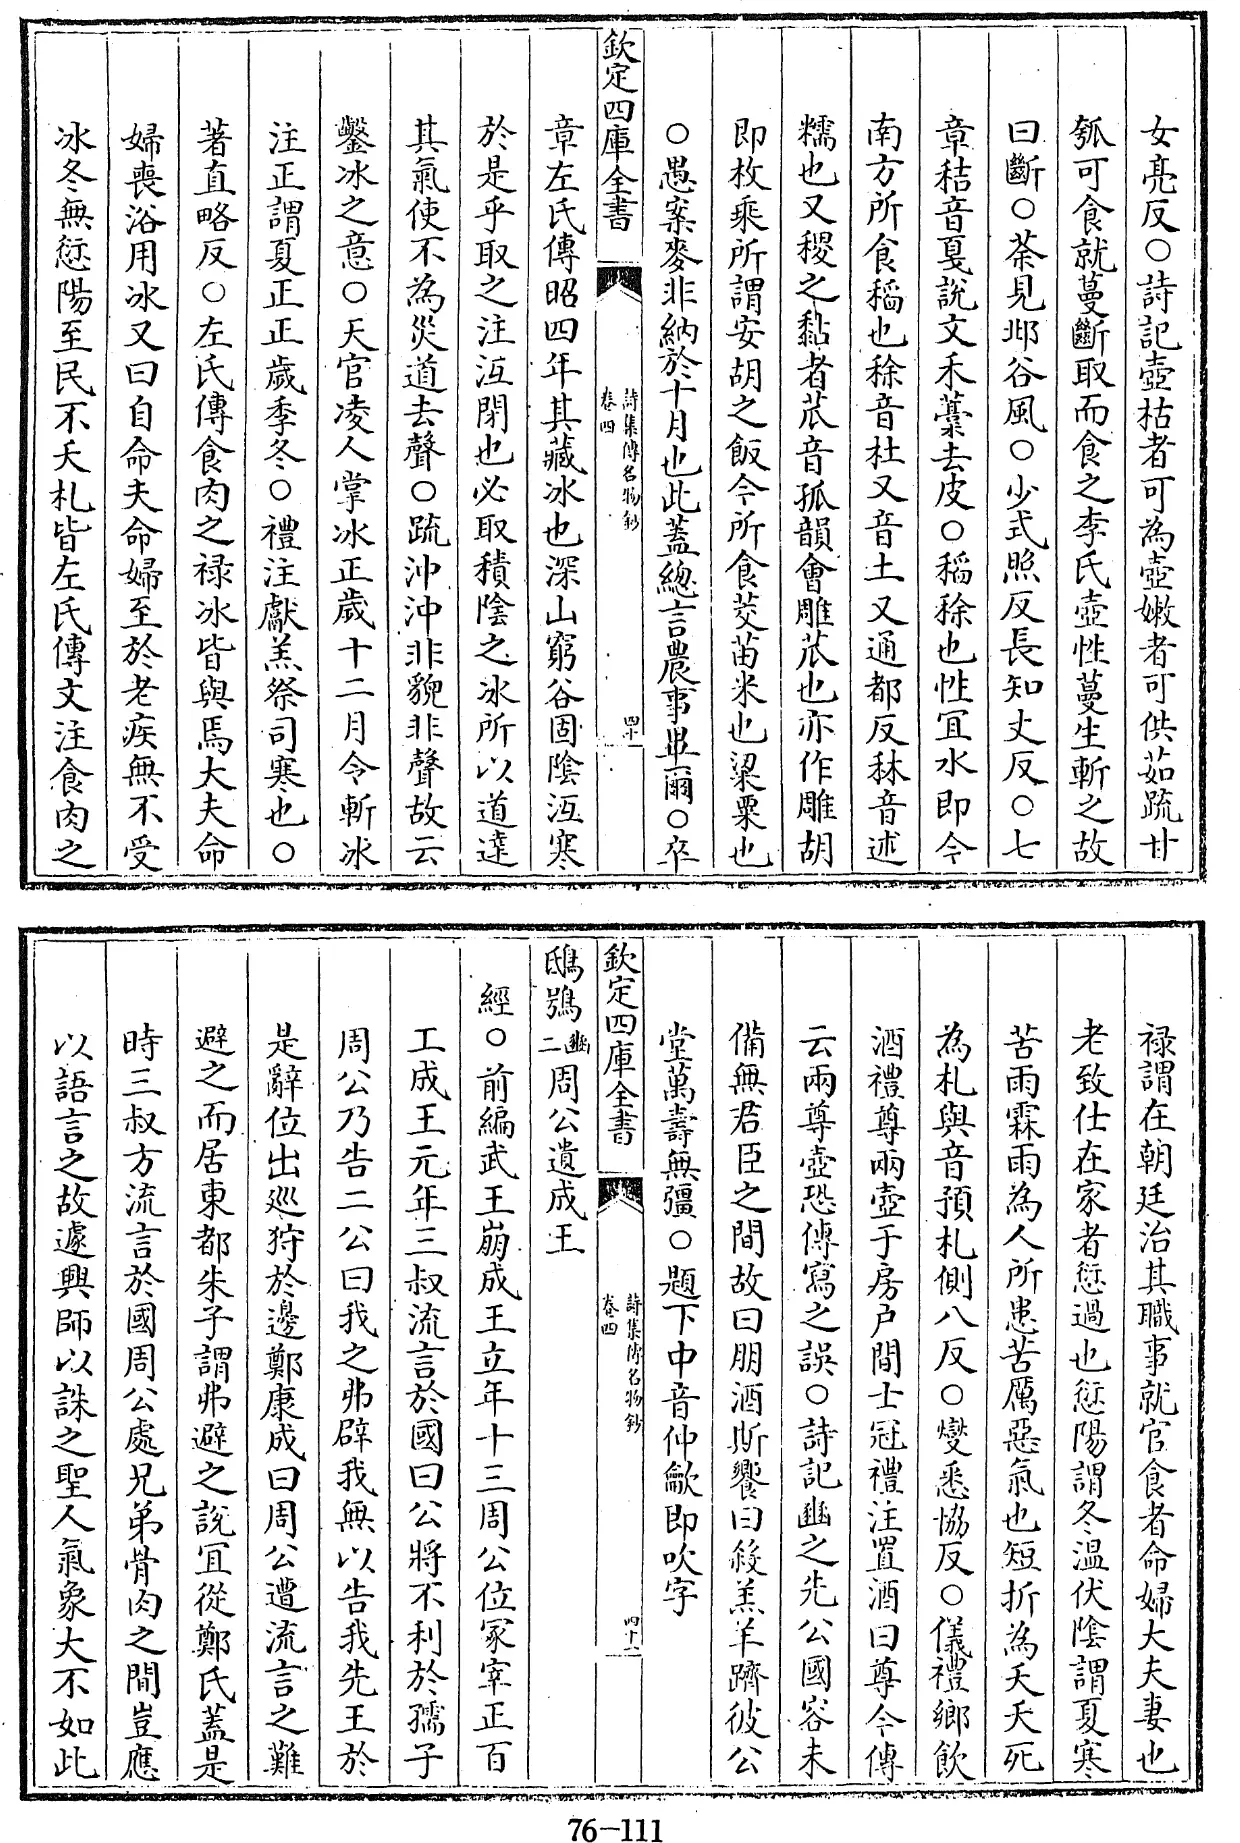 女亮反○詩記壺枯者可為壺嫩者可供茹疏甘
瓠可食就蔓斷取而食之李氏壺性蔓生斬之故
曰斷○荼見邶谷風○少式照反長知丈反○七
章秸音戛說文禾藁去皮○稻稌也性宜水即今
南方所食稻也稌音杜又音土又通都反秫音述
糯也又稷之黏者苽音孤韻會雕苽也亦作雕胡
即枚乘所謂安胡之飯今所食茭苗米也粱粟也
○愚案麥非納於十月也此蓋總言農事畢爾○卒
欽定四庫全書
詩集傳名物鈔
卷四
四十
章左氏傳昭四年其藏冰也深山窮谷固陰沍寒
於是乎取之注沍閉也必取積陰之冰所以道達
其氣使不為災道去聲○疏沖沖非貌非聲故云
鑿冰之意○天官凌人掌冰正歲十二月令斬冰
注正謂夏正正歲季冬○禮注獻羔祭司寒也○
著直略反○左氏傳食肉之禄冰皆與焉大夫命
婦喪浴用冰又曰自命夫命婦至於老疾無不受
冰冬無愆陽至民不夭札皆左氏傳文注食肉之
禄謂在朝廷治其職事就官食者命婦大夫妻也
老致仕在家者愆過也愆陽謂冬温伏陰謂夏寒
苦雨霖雨為人所患苦厲惡氣也短折為夭夭死
為札與音預札側八反○燮悉協反○儀禮鄉飲
酒禮尊兩壺于房户間士冠禮注置酒曰尊今傳
云兩尊壺恐傳寫之誤○詩記豳之先公國容未
備無君臣之間故曰朋酒斯饗曰殺羔羊躋彼公
堂萬壽無疆○題下中音仲龡即吹字
欽定四庫全書
詩集傳名物鈔
卷四
四十一
鴟鴞豳二周公遺成王
經○前編武王崩成王立年十三周公位冢宰正百
工成王元年三叔流言於國曰公將不利於孺子
周公乃告二公曰我之弗辟我無以告我先王於
是辭位出巡狩於邊鄭康成曰周公遭流言之難
避之而居東都朱子謂弗避之說宜從鄭氏蓋是
時三叔方流言於國周公處兄弟骨肉之間豈應
以語言之故遽興師以誅之聖人氣象大不如此
76-111